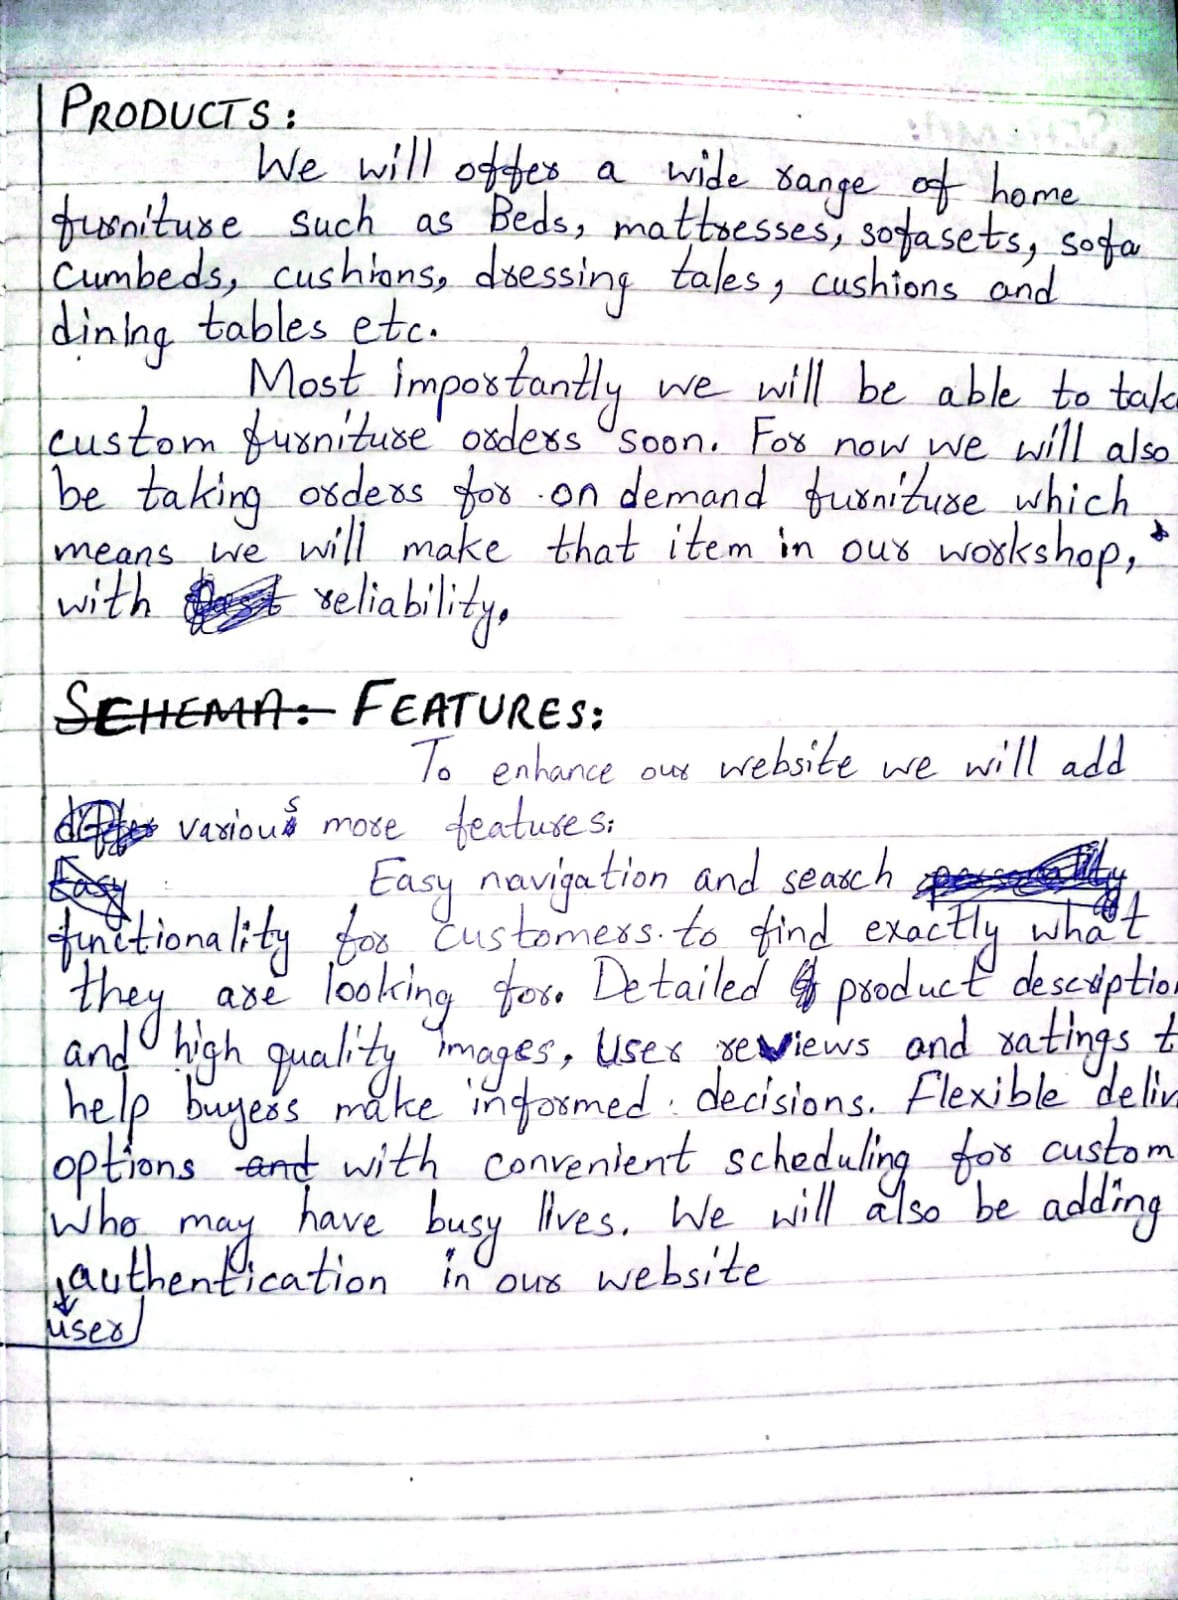 PRODUCTS:
We will offer a wide range of home
furniture such as Beds, mattresses, sofasets, sofa
cumbeds, cushions, dressing tales, cushions and
dining tables etc.
Most importantly we will be able to tak
custom furniture orders soon. For now we will also
be taking orders for on demand furniture which
means we will make that item in our workshop,
with reliability.
SCHEMA: FEATURES:
To enhance our website we will add
various more features:
Easy Easy navigation and search
functionality for customers to find exactly what
they are looking for. Detailed product descriptio
and high quality images, User reviews and ratings t
help buyers make informed decisions. Flexible deliv
options and with convenient scheduling for custom
who may have busy lives. We will also be adding
authentication in our website
user